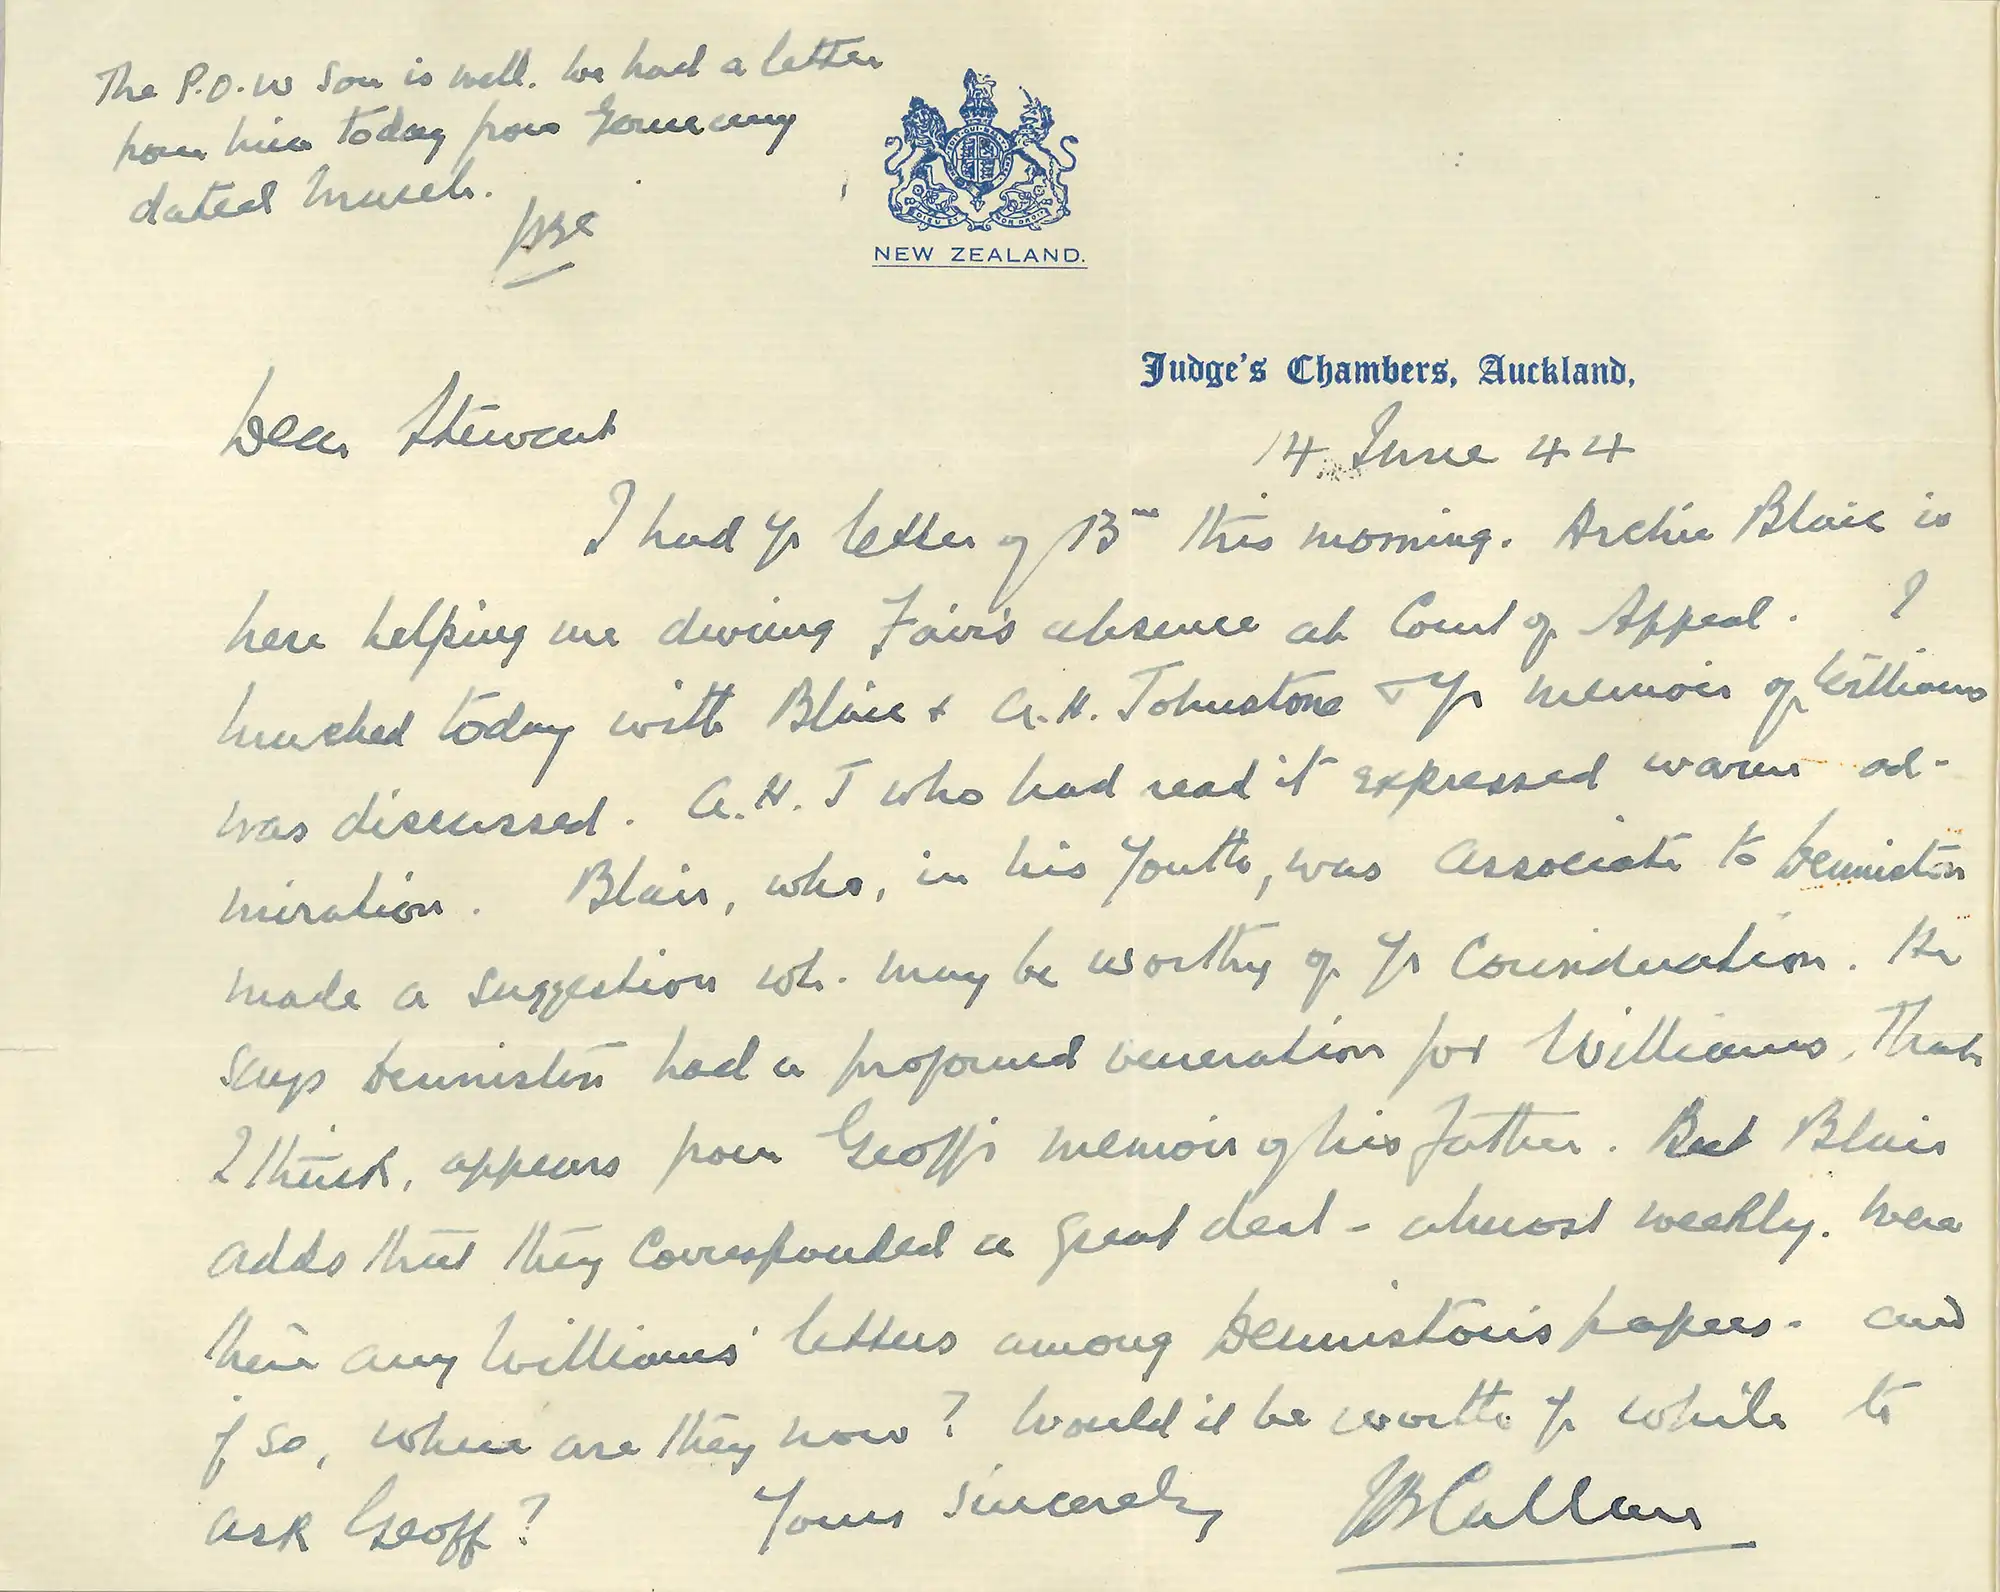 The P.O.W son is well. We had a letter
from him today from Germany
dated March.
JBC
NEW ZEALAND.
Judge's Chambers, Auckland,
14 June 44
Dear Stewart
I had yr letter of 13th this morning. Archie Blair is
here helping me during Fair's absence at Court of Appeal. I
lunched today with Blair & A.H. Johnstone & yr memoir of Williams
was discussed. A.H.J who had read it expressed warm ad-
miration. Blair, who, in his youth, was Associate to Denniston
made a suggestion wh. may be worthy of yr consideration. He
says Denniston had a profound veneration for Williams. That
I think, appears from Geoff's memoir of his father. But Blair
adds that they corresponded a great deal - almost weekly. Were
there any Williams' letters among Denniston's papers - and
if so, where are they now? Would it be worth yr while to
ask Geoff? Yours sincerely JB Callan